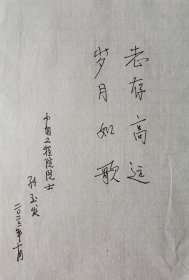 志存高远
岁月如歌
中国工程院院士
二〇二三年十月